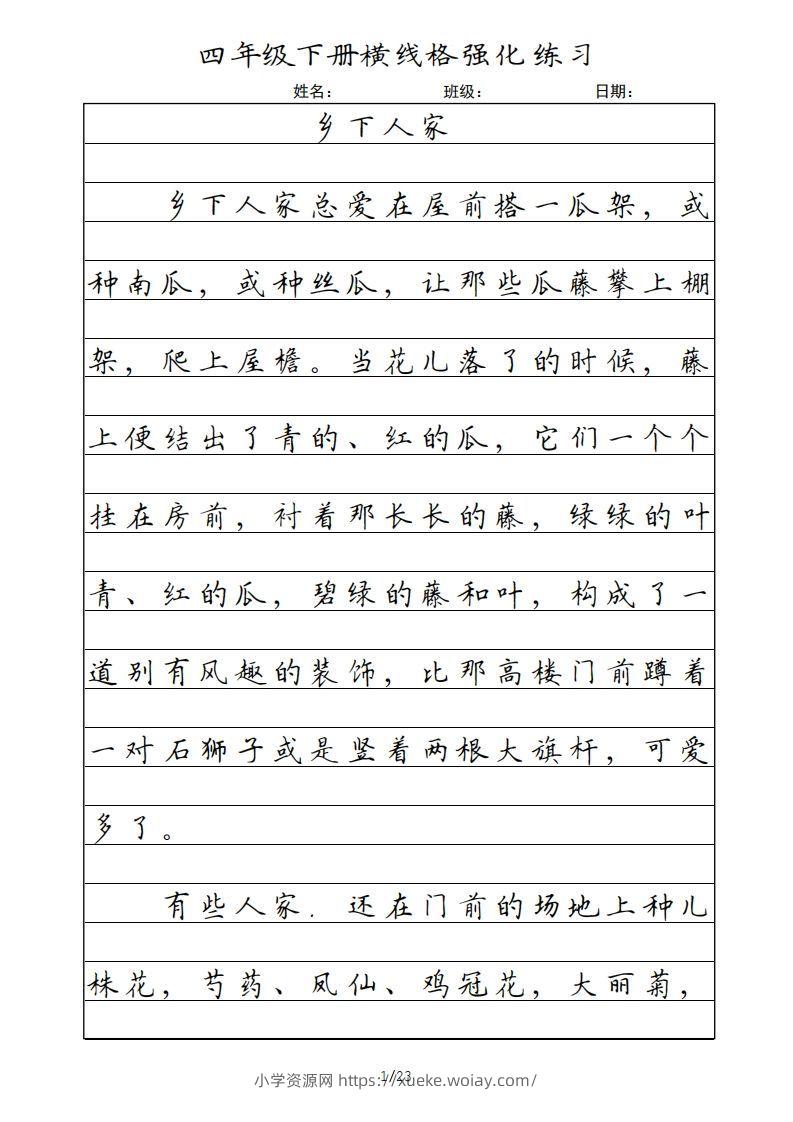 四年级下册横线格强化练习
姓名： 班级： 日期：
乡下人家
乡下人家总爱在屋前搭一瓜架，或
种南瓜，或种丝瓜，让那些瓜藤攀上棚
架，爬上屋檐。当花儿落了的时候，藤
上便结出了青的、红的瓜，它们一个个
挂在房前，衬着那长长的藤，绿绿的叶
青、红的瓜，碧绿的藤和叶，构成了一
道别有风趣的装饰，比那高楼门前蹲着
一对石狮子或是竖着两根大旗杆，可爱
多了。
有些人家．还在门前的场地上种儿
株花，芍药、凤仙、鸡冠花，大丽菊，
1/23
小学资源网 https://xueke.woiay.com/